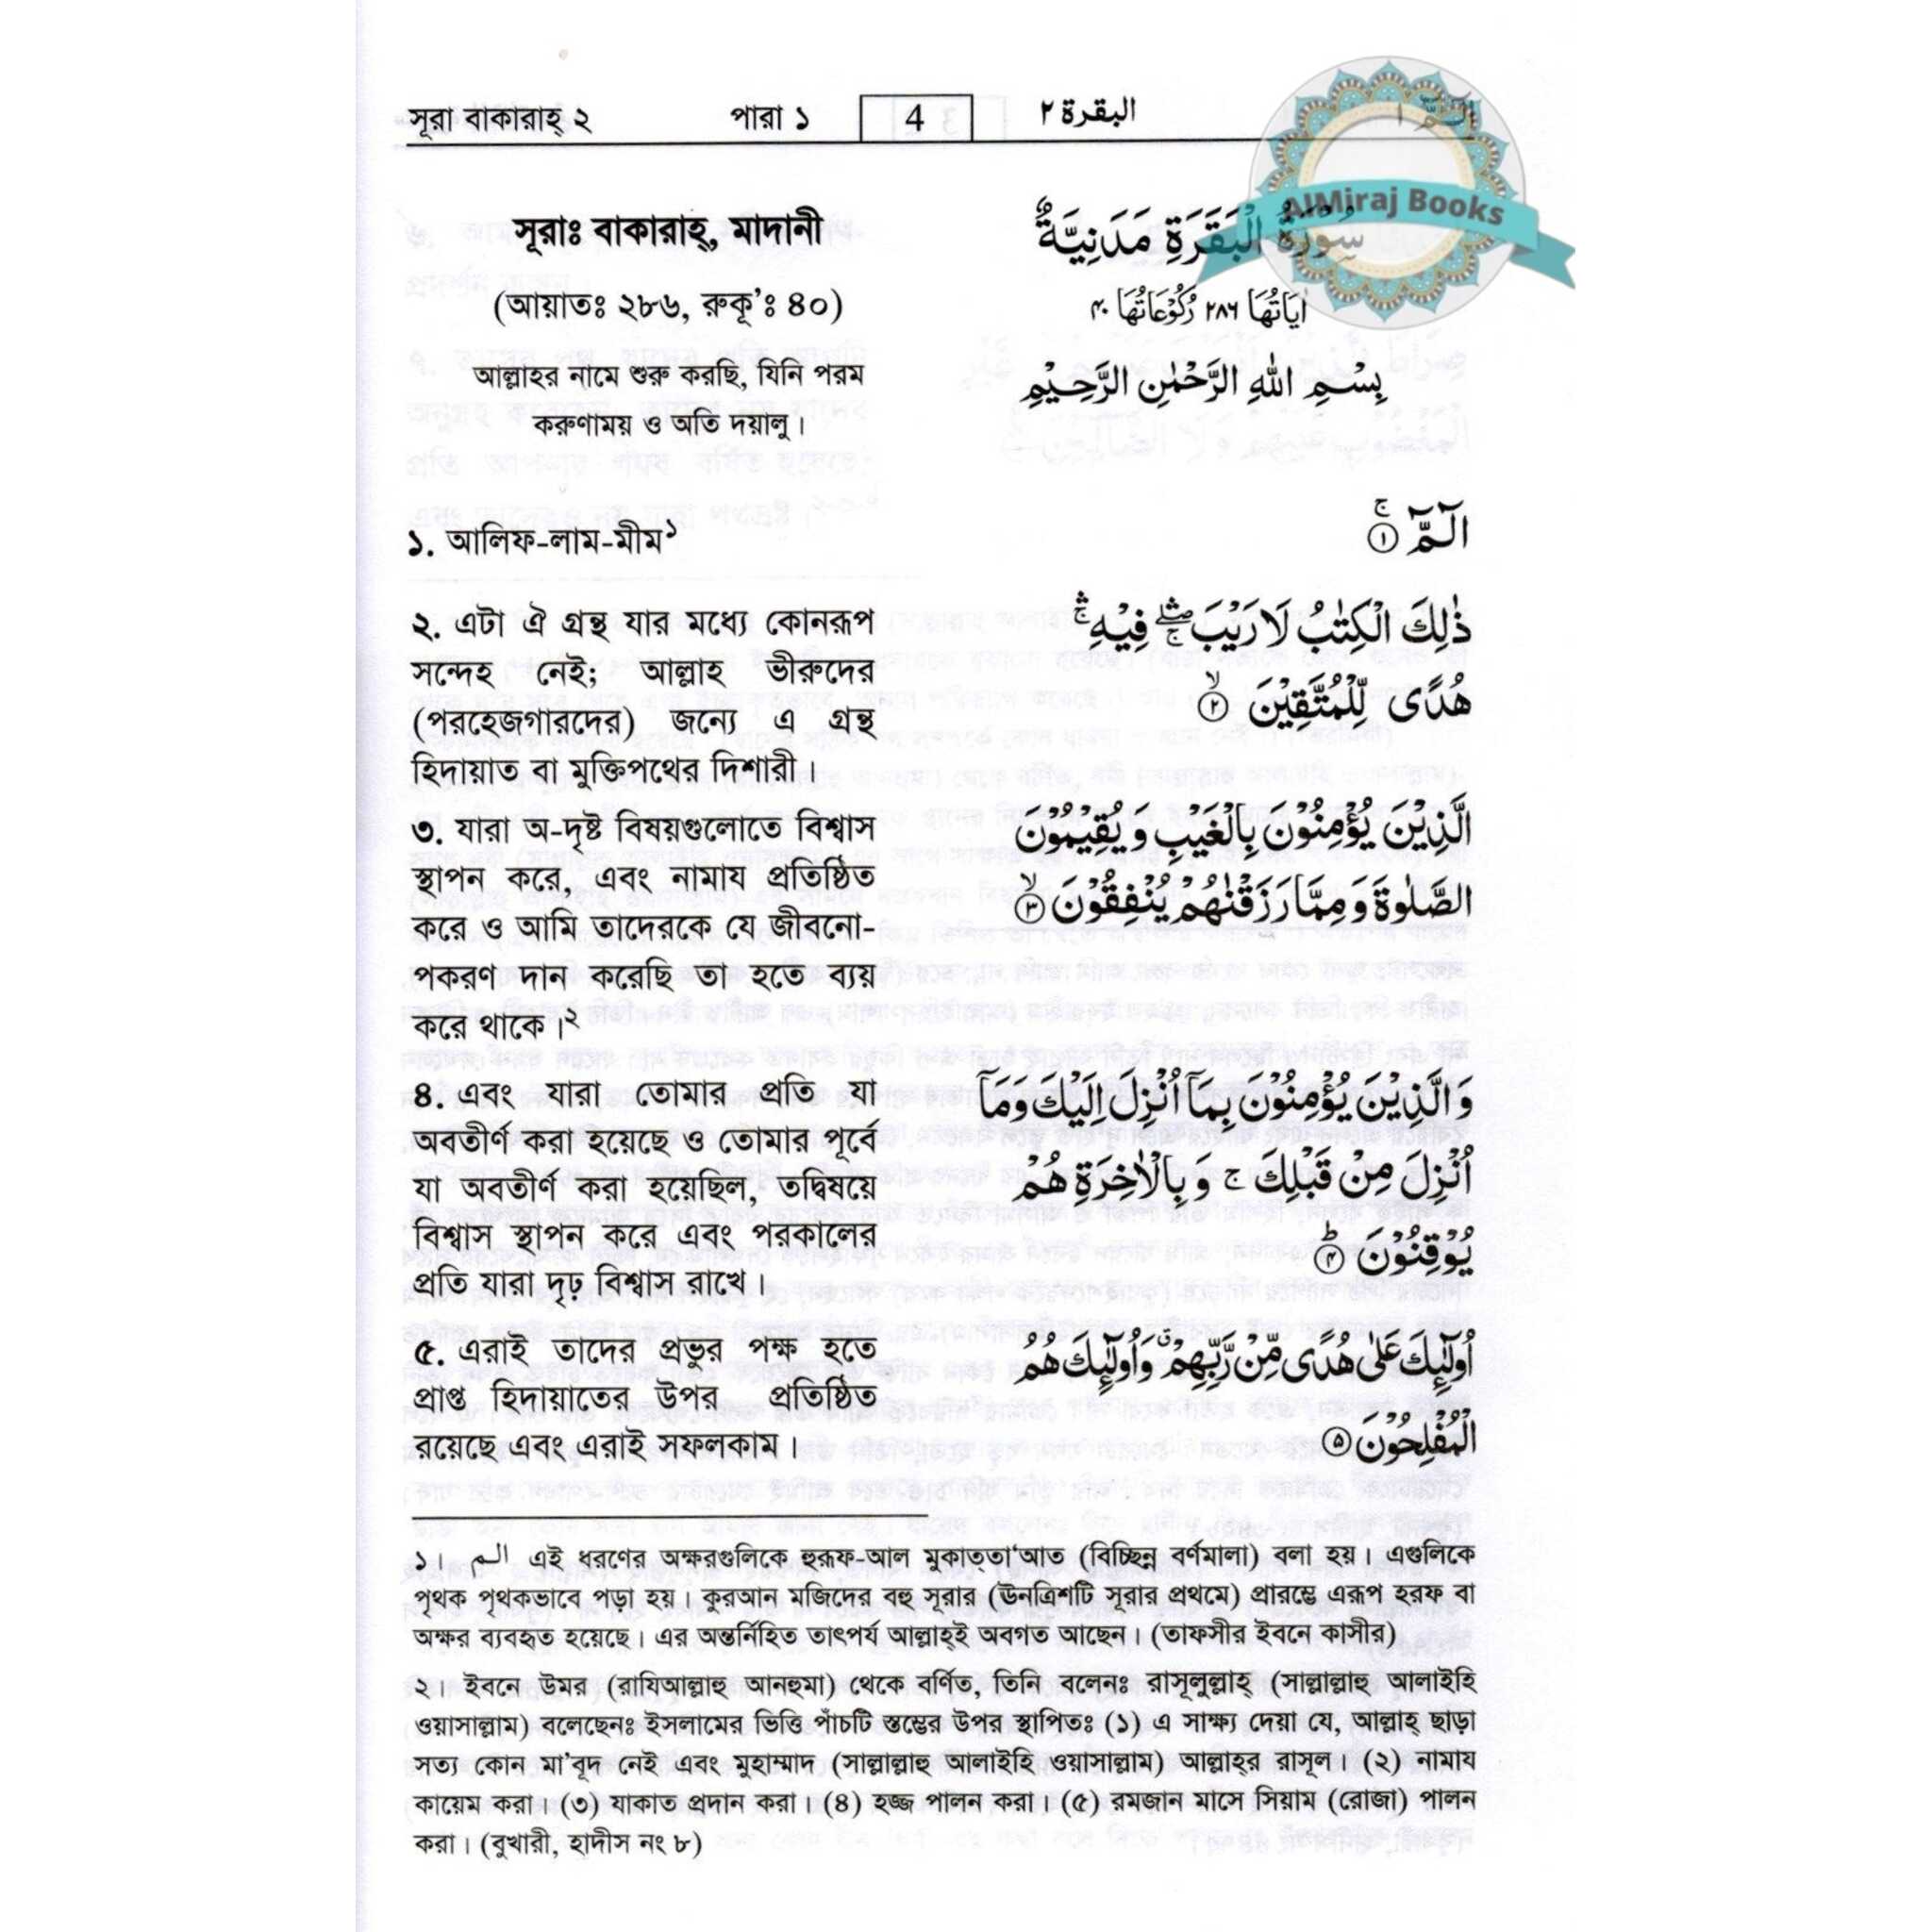 সূরা বাকারাহ্ ২ পারা ১ 4 البقرة ٢
AlMiraj Books
সূরাঃ বাকারাহ্, মাদানী
(আয়াতঃ ২৮৬, রুকূ'ঃ ৪০)
আল্লাহর নামে শুরু করছি, যিনি পরম
করুণাময় ও অতি দয়ালু।
১. আলিফ-লাম-মীম১
২. এটা ঐ গ্রন্থ যার মধ্যে কোনরূপ
সন্দেহ নেই; আল্লাহ ভীরুদের
(পরহেজগারদের) জন্যে এ গ্রন্থ
হিদায়াত বা মুক্তিপথের দিশারী।
৩. যারা অ-দৃষ্ট বিষয়গুলোতে বিশ্বাস
স্থাপন করে, এবং নামায প্রতিষ্ঠিত
করে ও আমি তাদেরকে যে জীবনো-
পকরণ দান করেছি তা হতে ব্যয়
করে থাকে।২
৪. এবং যারা তোমার প্রতি যা
অবতীর্ণ করা হয়েছে ও তোমার পূর্বে
যা অবতীর্ণ করা হয়েছিল, তদ্বিষয়ে
বিশ্বাস স্থাপন করে এবং পরকালের
প্রতি যারা দৃঢ় বিশ্বাস রাখে।
৫. এরাই তাদের প্রভুর পক্ষ হতে
প্রাপ্ত হিদায়াতের উপর প্রতিষ্ঠিত
রয়েছে এবং এরাই সফলকাম।
سُوْرَةُ الْبَقَرَةِ مَدَنِيَّةٌ
اٰيَاتُهَا ٢٨٦ رُكُوْعَاتُهَا ٤٠
بِسْمِ اللهِ الرَّحْمٰنِ الرَّحِيْمِ
الٓمّٓ ۚ ١
ذٰلِكَ الْكِتٰبُ لَا رَيْبَ ۛۖ فِيْهِ ۛۚ
هُدًى لِّلْمُتَّقِيْنَ ۙ ٢
الَّذِيْنَ يُؤْمِنُوْنَ بِالْغَيْبِ وَ يُقِيْمُوْنَ
الصَّلٰوةَ وَ مِمَّا رَزَقْنٰهُمْ يُنْفِقُوْنَ ۙ ٣
وَ الَّذِيْنَ يُؤْمِنُوْنَ بِمَآ اُنْزِلَ اِلَيْكَ وَ مَآ
اُنْزِلَ مِنْ قَبْلِكَ ۚ وَ بِالْاٰخِرَةِ هُمْ
يُوْقِنُوْنَ ؕ ٤
اُولٰٓئِكَ عَلٰى هُدًى مِّنْ رَّبِّهِمْ ۗ وَ اُولٰٓئِكَ هُمُ
الْمُفْلِحُوْنَ ٥
১। الـم এই ধরণের অক্ষরগুলিকে হুরূফ-আল মুকাত্তা‘আত (বিচ্ছিন্ন বর্ণমালা) বলা হয়। এগুলিকে
পৃথক পৃথকভাবে পড়া হয়। কুরআন মজিদের বহু সূরার (ঊনত্রিশটি সূরার প্রথমে) প্রারম্ভে এরূপ হরফ বা
অক্ষর ব্যবহৃত হয়েছে। এর অন্তর্নিহিত তাৎপর্য আল্লাহ্‌ই অবগত আছেন। (তাফসীর ইবনে কাসীর)
২। ইবনে উমর (রাযিআল্লাহু আনহুমা) থেকে বর্ণিত, তিনি বলেনঃ রাসূলুল্লাহ্ (সাল্লাল্লাহু আলাইহি
ওয়াসাল্লাম) বলেছেনঃ ইসলামের ভিত্তি পাঁচটি স্তম্ভের উপর স্থাপিতঃ (১) এ সাক্ষ্য দেয়া যে, আল্লাহ্ ছাড়া
সত্য কোন মা'বূদ নেই এবং মুহাম্মাদ (সাল্লাল্লাহু আলাইহি ওয়াসাল্লাম) আল্লাহ্‌র রাসূল। (২) নামায
কায়েম করা। (৩) যাকাত প্রদান করা। (৪) হজ্জ পালন করা। (৫) রমজান মাসে সিয়াম (রোজা) পালন
করা। (বুখারী, হাদীস নং ৮)